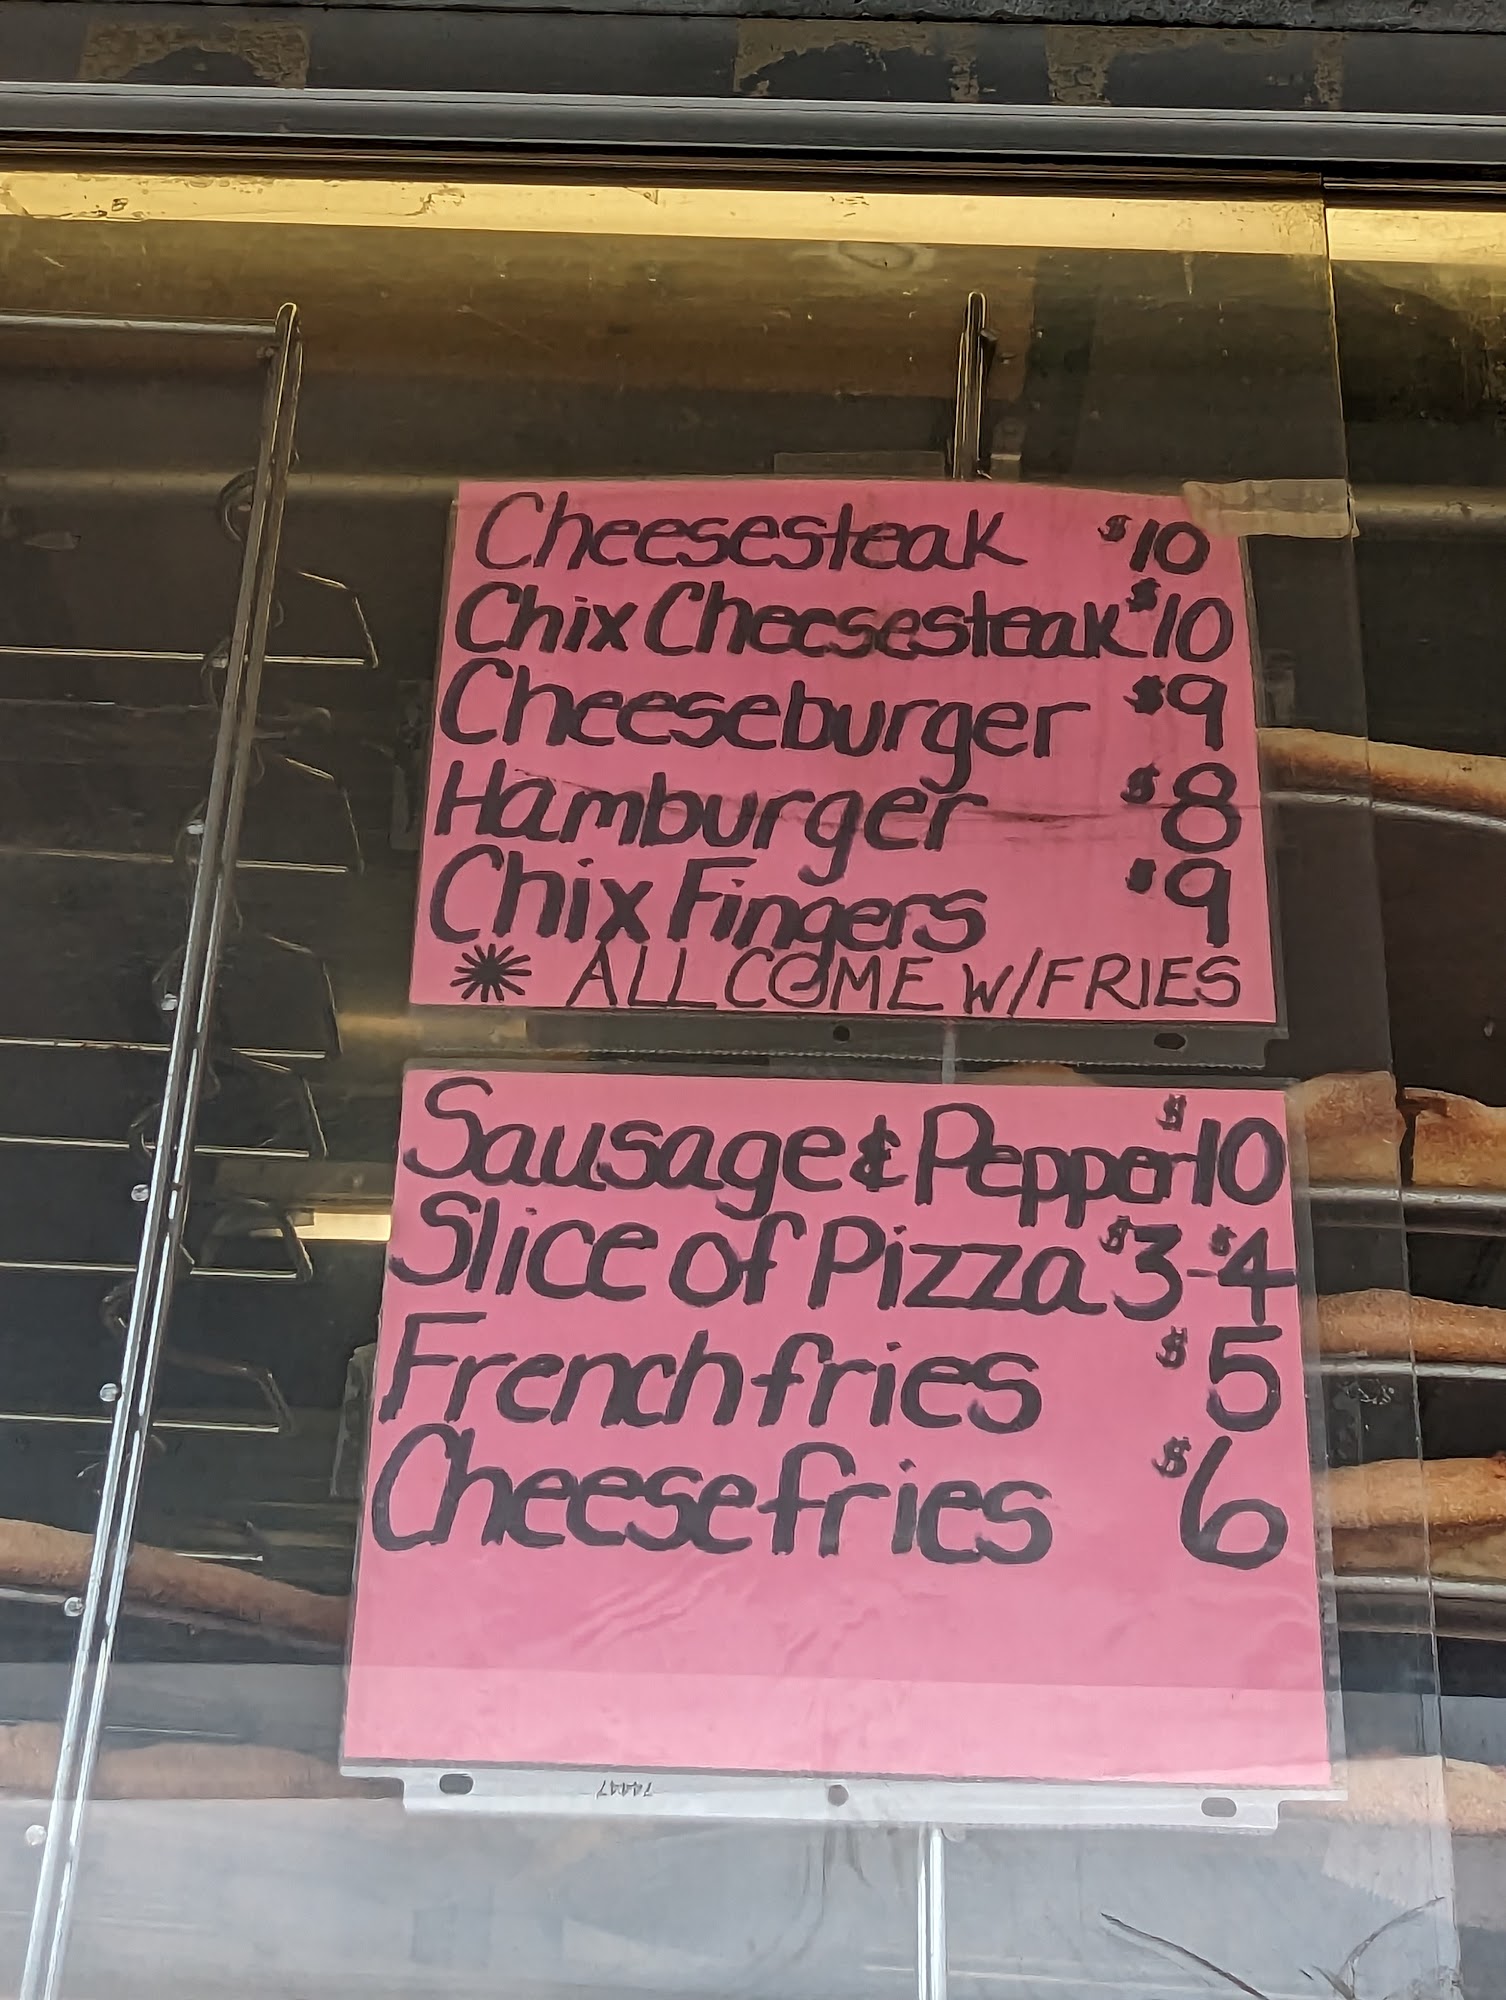 Cheesesteak $10
Chix Cheesesteak $10
Cheeseburger $9
Hamburger $8
Chix Fingers $9
* ALL COME W/FRIES
Sausage & Pepper $10
Slice of Pizza $3-$4
French fries $5
Cheese fries $6
74447